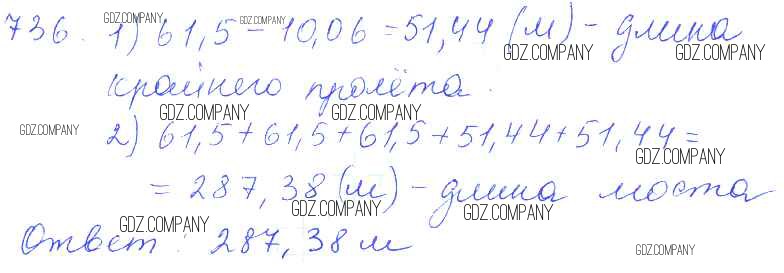 736. 1) 61,5 - 10,06 = 51,44 (м) - длина
крайнего пролёта.
2) 61,5+61,5+61,5+51,44+51,44=
= 287,38 (м) - длина моста
Ответ: 287,38 м
GDZ.COMPANY
GDZ.COMPANY
GDZ.COMPANY
GDZ.COMPANY
GDZ.COMPANY
GDZ.COMPANY
GDZ.COMPANY
GDZ.COMPANY
GDZ.COMPANY
GDZ.COMPANY
GDZ.COMPANY
GDZ.COMPANY
GDZ.COMPANY